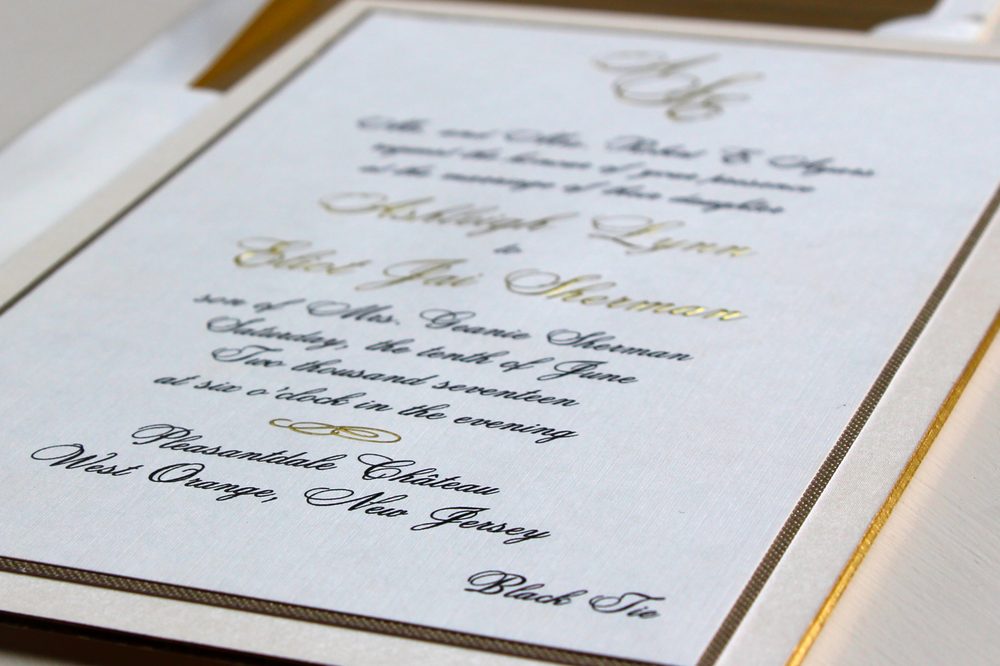 Mr. and Mrs. Robert E Ayers
request the honour of your presence
at the marriage of their daughter
Ashleigh Lynn
to
Elliot Jai Sherman
son of Mrs. Geanie Sherman
Saturday, the tenth of June
Two thousand seventeen
at six o'clock in the evening
Pleasantdale Château
West Orange, New Jersey
Black Tie